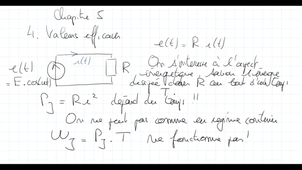 Chapitre 5
4. Valeurs efficaces
e(t) = R i(t)
i(t)
e(t)
= E.cos(ωt)
R
On s'intéresse à l'aspect
énergétique
dissipée dans R au bout d'un temps
T
P_J = R i² dépend du temps !!
On ne peut pas comme en régime continu
W_J = P_J . T ne fonctionne pas !